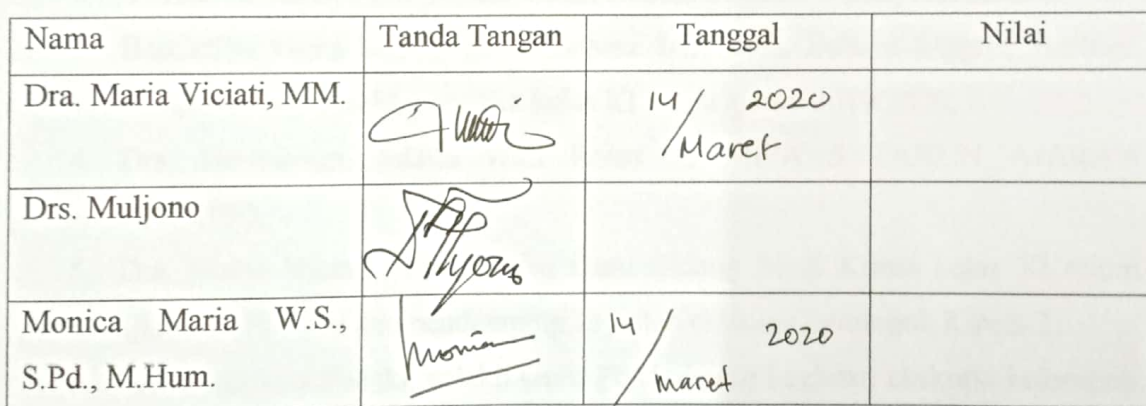 Nama Tanda Tangan Tanggal Nilai
Dra. Maria Viciati, MM. 14/ Maret 2020
Drs. Muljono
Monica Maria W.S., Monica 14/ Maret 2020
S.Pd., M.Hum.